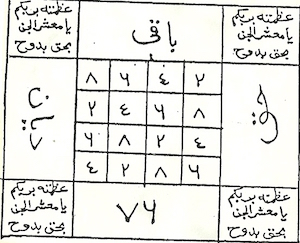 عظمته بريكم
يا معشر الجن
بحق بدوح
باقي
عظمته بريكم
يا معشر الجن
بحق بدوح
٨ ۶ ٤ ٢
٢ ٤ ۶ ٨
۶ ٨ ٢ ٤
٤ ٢ ٨ ۶
عظمته بريكم
يا معشر الجن
بحق بدوح
٧۶
عظمته بريكم
يا معشر الجن
بحق بدوح